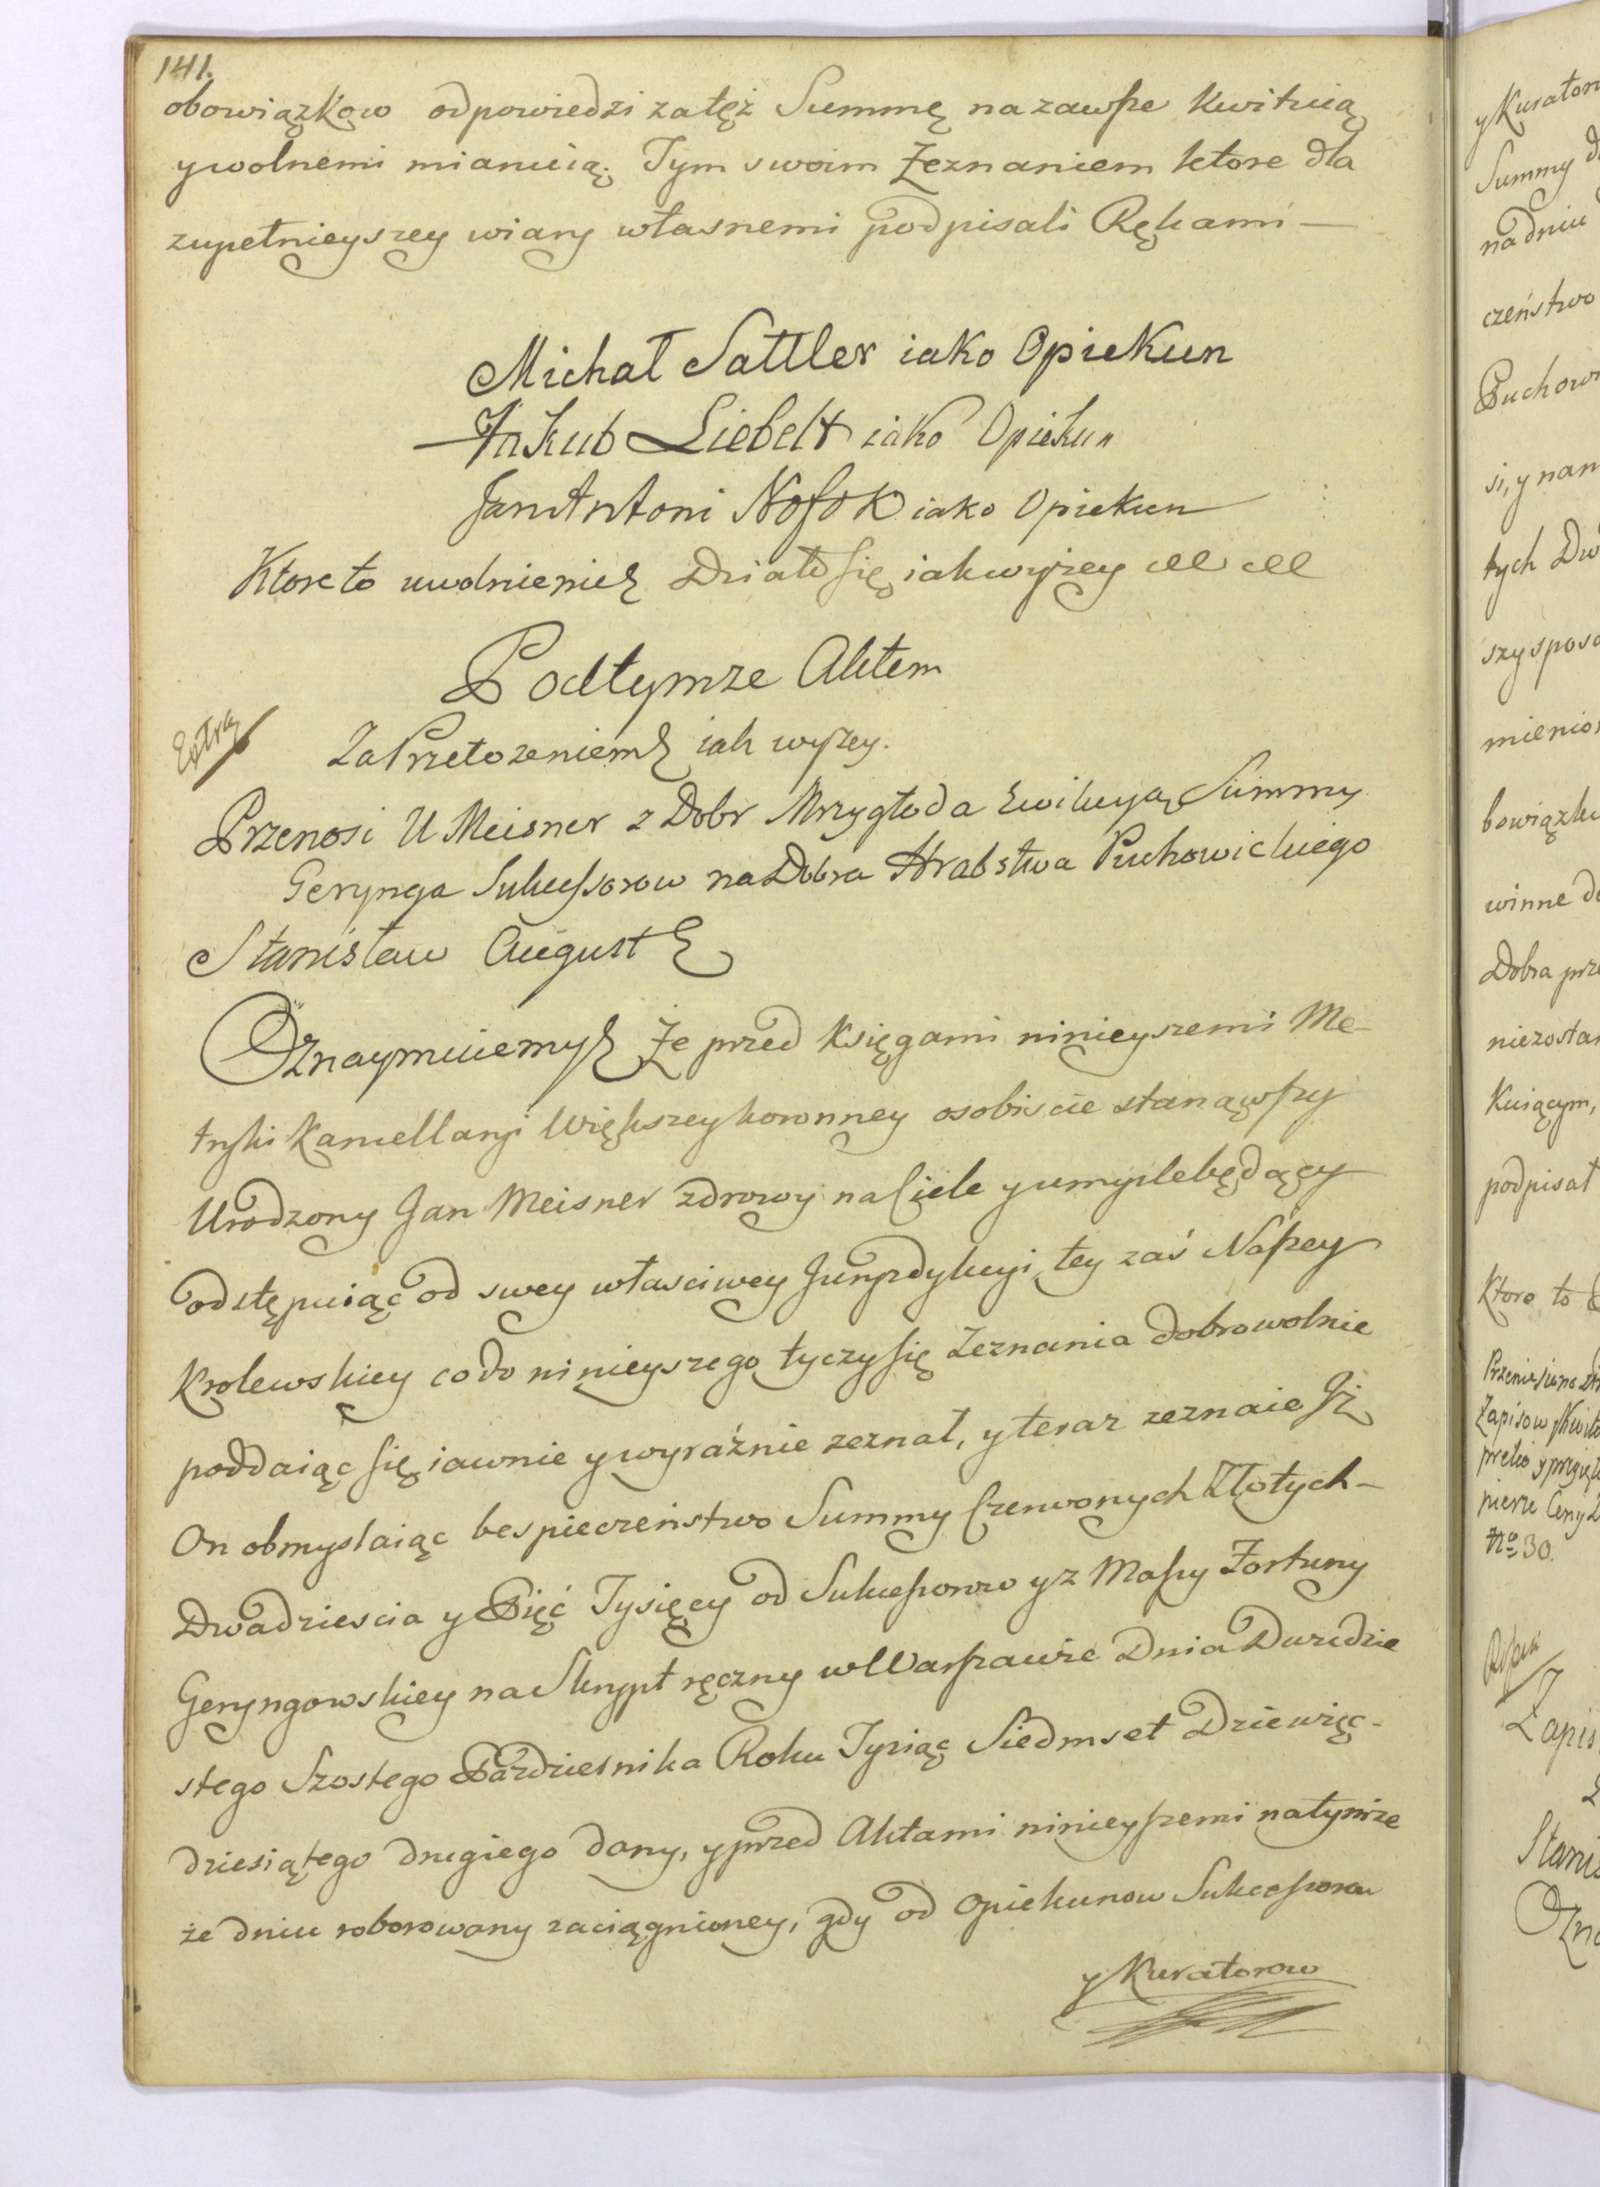 141.
obowiązkow odpowiedzi zatęż Summę na zawsze kwituią
y wolnemi mianuią. Tym swoim Zeznaniem ktore dla
zupełnieyszey wiary własnemi podpisali Rękami —
Michał Sattler iako Opiekun
Jakub Liebelt iako Opiekun
Jan Antoni Nosok iako Opiekun
Ktore to uwolnienie Działo się iak wyżey
Pod tymze Aktem
Extra
Za Przełozeniem iak wyżey.
Przenosi U Meisner z Dobr Mrzygłoda Ewikcyą Summy
Gerynga Sukcessorow na Dobra Hrabstwa Puchowickiego
Stanisław August
Oznaymuiemy Że przed Księgami ninieyszemi Me-
tryki Kancellaryi Większey koronney osobiscie stanąwszy
Urodzony Jan Meisner zdrowy na Ciele y umysle będący
odstępuiąc od swey własciwey Jurysdykcyi tey zaś Naszey
Krolewskiey co do ninieyszego tyczy się Zeznania dobrowolnie
poddaiąc się iawnie y wyraźnie zeznał, y teraz zeznaie Jż
On obmyslaiąc bespieczeństwo Summy Czerwonych Złotych-
Dwadziescia y Pięć Tysięcy od Sukcessorow y z Massy Fortuny
Geryngowskiey na Skrypt ręczny w Warszawie Dnia Dwudzie
stego Szostego Pazdziernika Roku Tysiąc Siedmset Dziewięc-
dziesiątego drugiego dany, y przed Aktami ninieyszemi na tymże
że dniu roborowany zaciągnioney, gdy od Opiekunow Sukcessorow
y Kuratorow
y Kurator
Summy
na dniu
czeństwo
Puchow
si, y nam
tych Dw
szy sposo
mienion
bowiązku
winne do
Dobra prz
niezostan
Kuiącym,
podpisał
Ktore to
Zapisow y Kwit
No 30.
Zapis
Stanis
Ozna